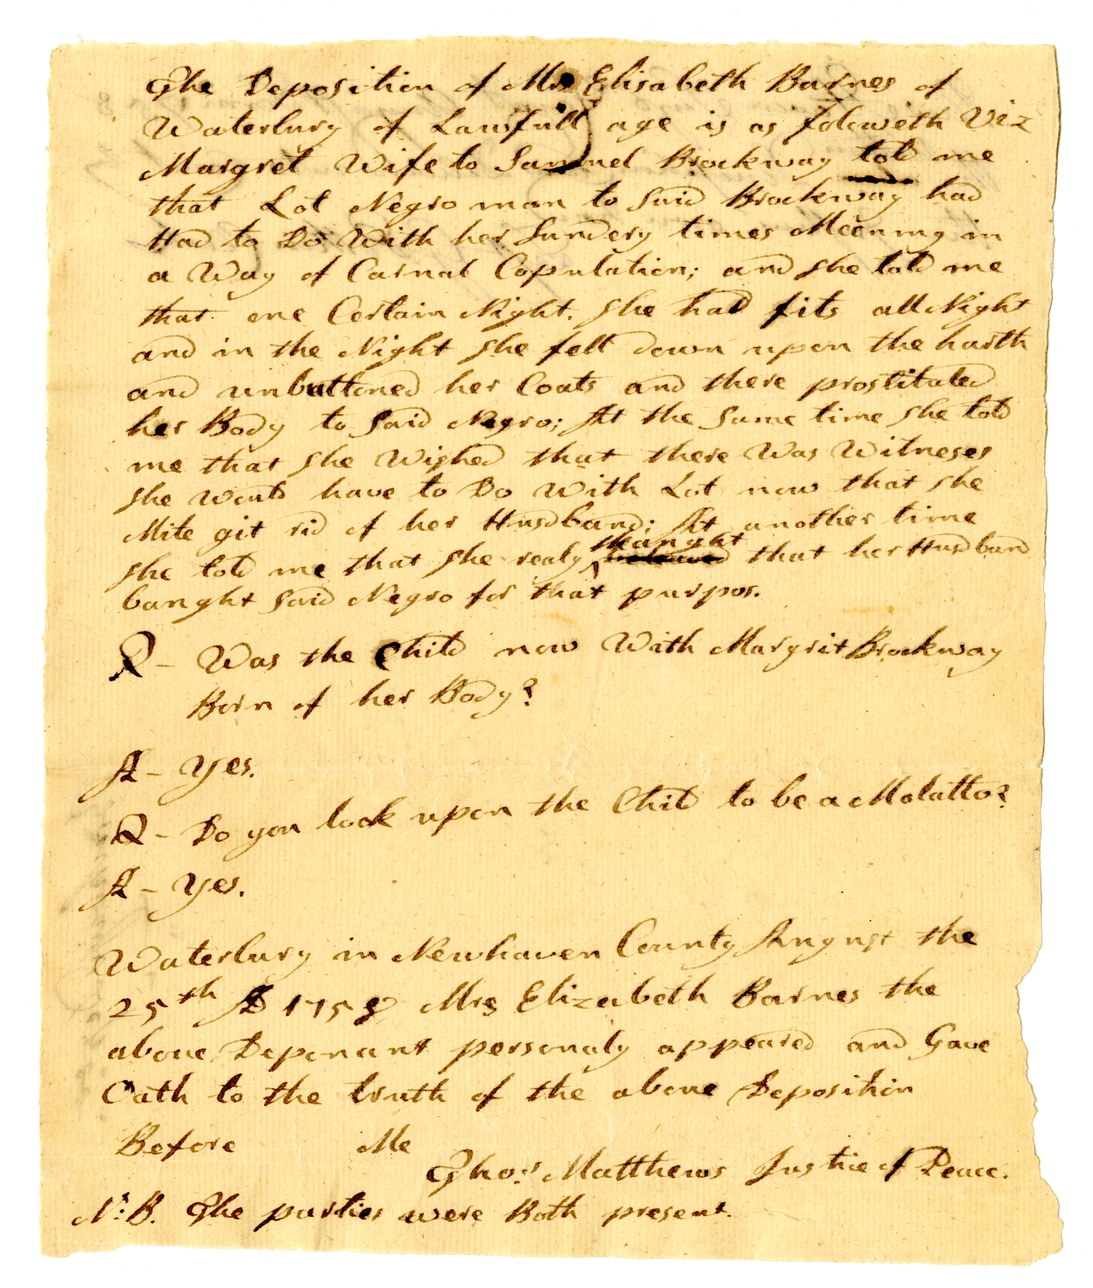 The Deposition of Mrs Elisabeth Barnes of
Waterbury of Lawfull age is as foloweth Viz
Margret Wife to Samuel Brockway told me
that Lot Negro man to Said Brockway had
Had to Do With her Sundery times Meening in
a Way of Carnal Copulation; and She told me
that one Certain Night, She had fits all Night
and in the Night She fell down upon the harth
and unbuttoned her Coats and there prostituted
her Body to Said Negro; At the Same time She told
me that She Wished that there Was Witneses
She Would have to Do With Lot now that She
Mite git rid of her Husband; At another time
She told me that She realy thaught that her Husband
baught Said Negro for that purpos.
Q - Was the Child now With Margrit Brockway
Born of her Body?
A - Yes.
Q - Do you look upon the Child to be a Molatto?
A - Yes.
Waterbury in Newhaven County August the
25th AD 1758 Mrs Elizabeth Barnes the
above Deponant personaly appeared and Gave
Oath to the truth of the above Deposition
Before Me
Thos. Matthews Justice of Peace.
N:B. The parties were Both present.